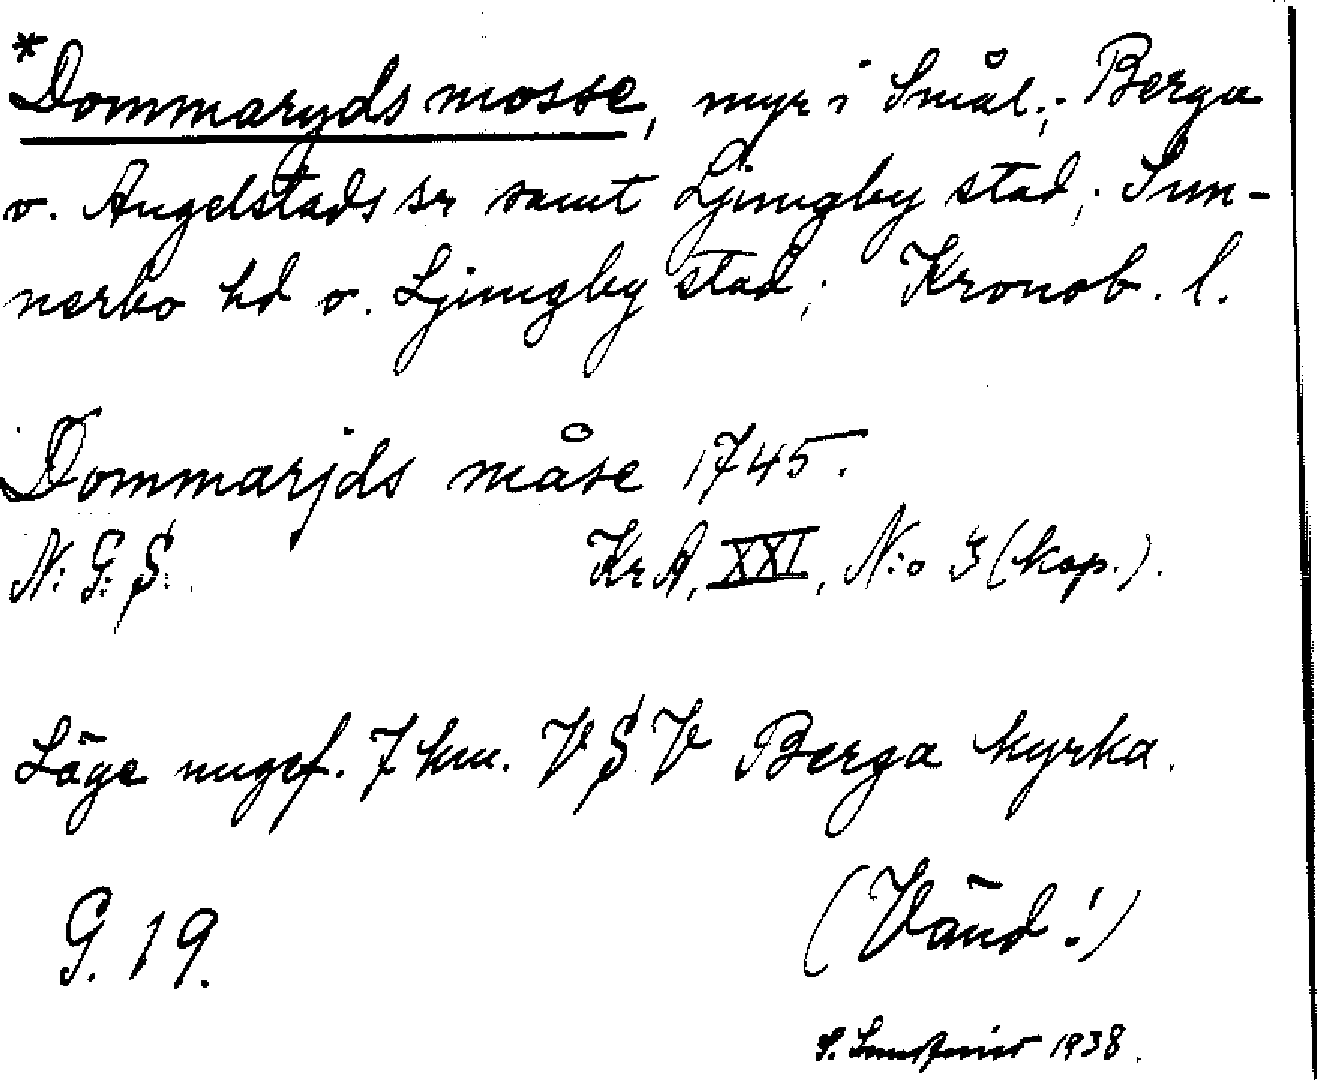 *Dommaryds mosse, myr i Smål.; Berga
o. Angelstads sr samt Ljungby stad; Sun-
nerbo hd o. Ljungby stad; Kronob. l.
Dommarjds måse 1745.
N: G: S:. KrA, XXI, N:o 3 (kop.).
Läge ungef. 7 km. VSV Berga kyrka.
G. 19. (Vänd!)
1938.